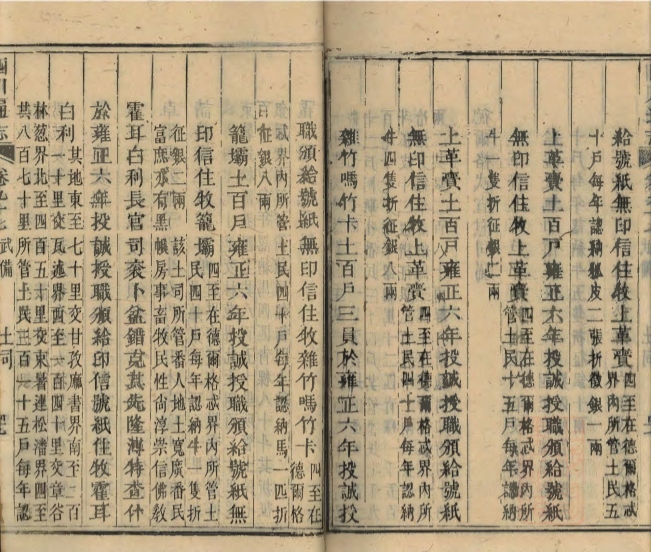 給號紙無印信住牧上革賚
四至在德爾格忒
界內所管土民五
十戶每年認納狐皮二張折徵銀一兩
上革賚土百戶雍正六年投誠授職頒給號紙
無印信住牧上革賚
四至在德爾格忒界內所
管土民十五戶每年認納
牛一隻折征銀二兩
上革賚土百戶雍正六年投誠授職頒給號紙
無印信住牧上革賚
四至在德爾格忒界內所
管土民四十戶每年認納
牛四隻折征銀八兩
雜竹嗎竹卡土百戶三員於雍正六年投誠授
職頒給號紙無印信住牧雜竹嗎竹卡
四至在
德爾格
忒界內所管土民四千戶每年認納馬一匹折
征銀八兩
籠壩土百戶雍正六年投誠授職頒給號紙無
印信住牧籠壩
四至在德爾格忒界內所管土
民四十戶每年認納牛一隻折
征銀二兩
該土司所管番人地土寬廣番民
富庶亦有黑帳房事畜牧民性尚淳崇信佛教
霍耳白利長官司
其先隆溥特查什
於雍正六年投誠授職頒給印信號紙住牧霍耳
白利
其地東至七十里交甘孜麻書界南至二百
一十里交瓦述界西至一百四十里交章谷
林葱界北至四百五十里交東署連松潘界四至
共八百七十里所管土民三百一十五戶每年認
四川通志
卷九十七
武備
土司